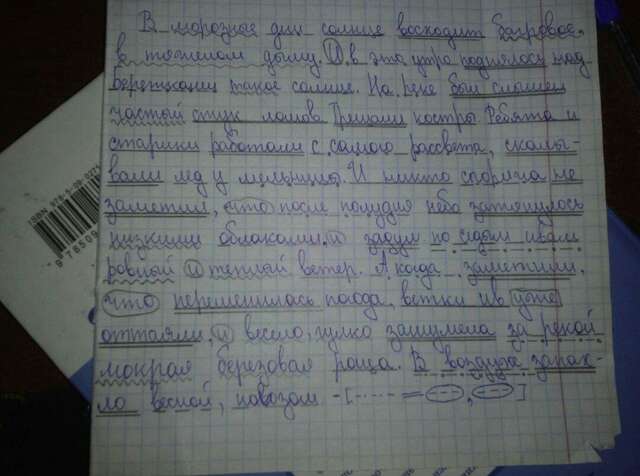 В морозные дни солнце восходит багровое,
в тяжелом дыму. И в это утро поднялось над
бережками такое солнце. На реке был слышен
частый стук ломов. Трещали костры. Ребята и
старики работали с самого рассвета, скалы-
вали лед у мельницы. И никто сгоряча не
заметил, что после полудня небо затянулось
низкими облаками и задул по седым ивам
ровный и теплый ветер. А когда заметили,
что переменилась погода, ветки ив уже
оттаяли, и весело, гулко зашумела за рекой
мокрая березовая роща. В воздухе запах-
ло весной, навозом - [ = , ]
ISBN 978-5-09-02